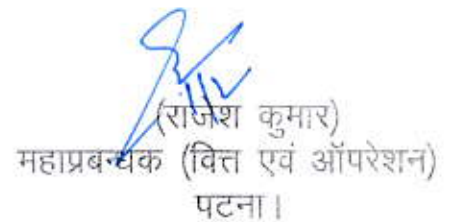 (राजेश कुमार)
महाप्रबन्धक (वित्त एवं ऑपरेशन)
पटना।